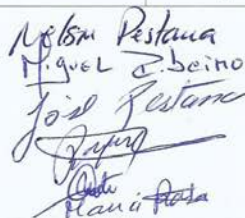 Nelson Pestana
Miguel Ribeiro
José Pestana
Maria Rosa